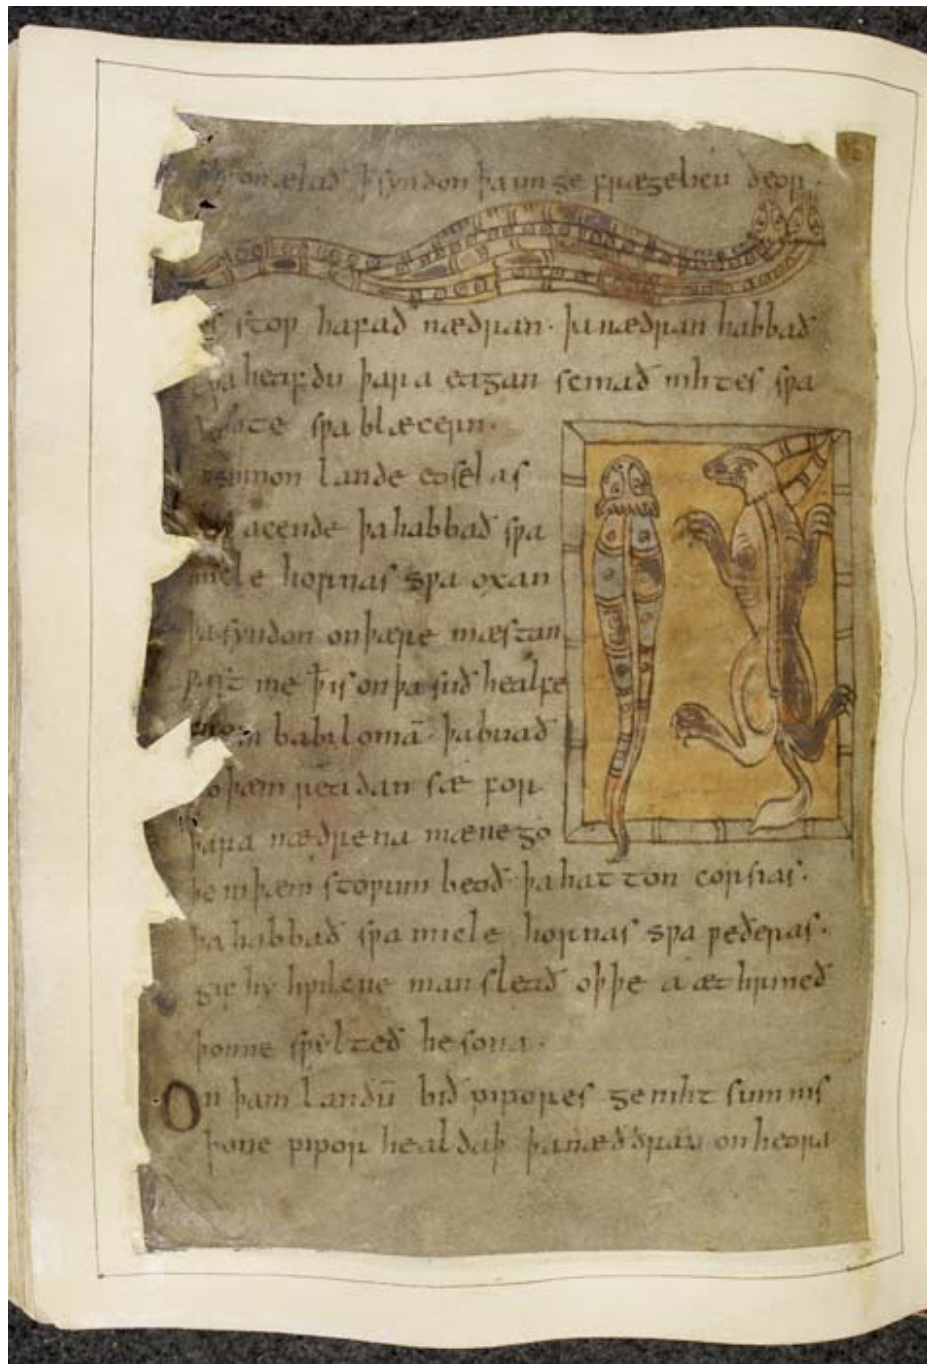 onælað ꝥ syndon þa un ge frægelicu deor·
stoƿ hafað nædran· þa nædran habbað
heafdu þara eagan scinað nihtes sƿa
sƿa blæcern·
lande eoselas
acende þa habbað sƿa
micle hornas sƿa oxan
þa syndon on þære mæstan
ꝥ is on þa suð healfe
babiloniā· þa buað
þæm readan sæ for
þara nædrena mænego
þe in þæm stoƿum beoð þa hatton corsias·
þa habbað sƿa micle hornas sƿa ƿeðeras·
gif hy hƿilcne man sleað oþþe a æt hrineð
þonne sƿylteð he sona·
On þam landū bið pipores geniht sum nis
þone pipor healdaþ þa næddran on heora